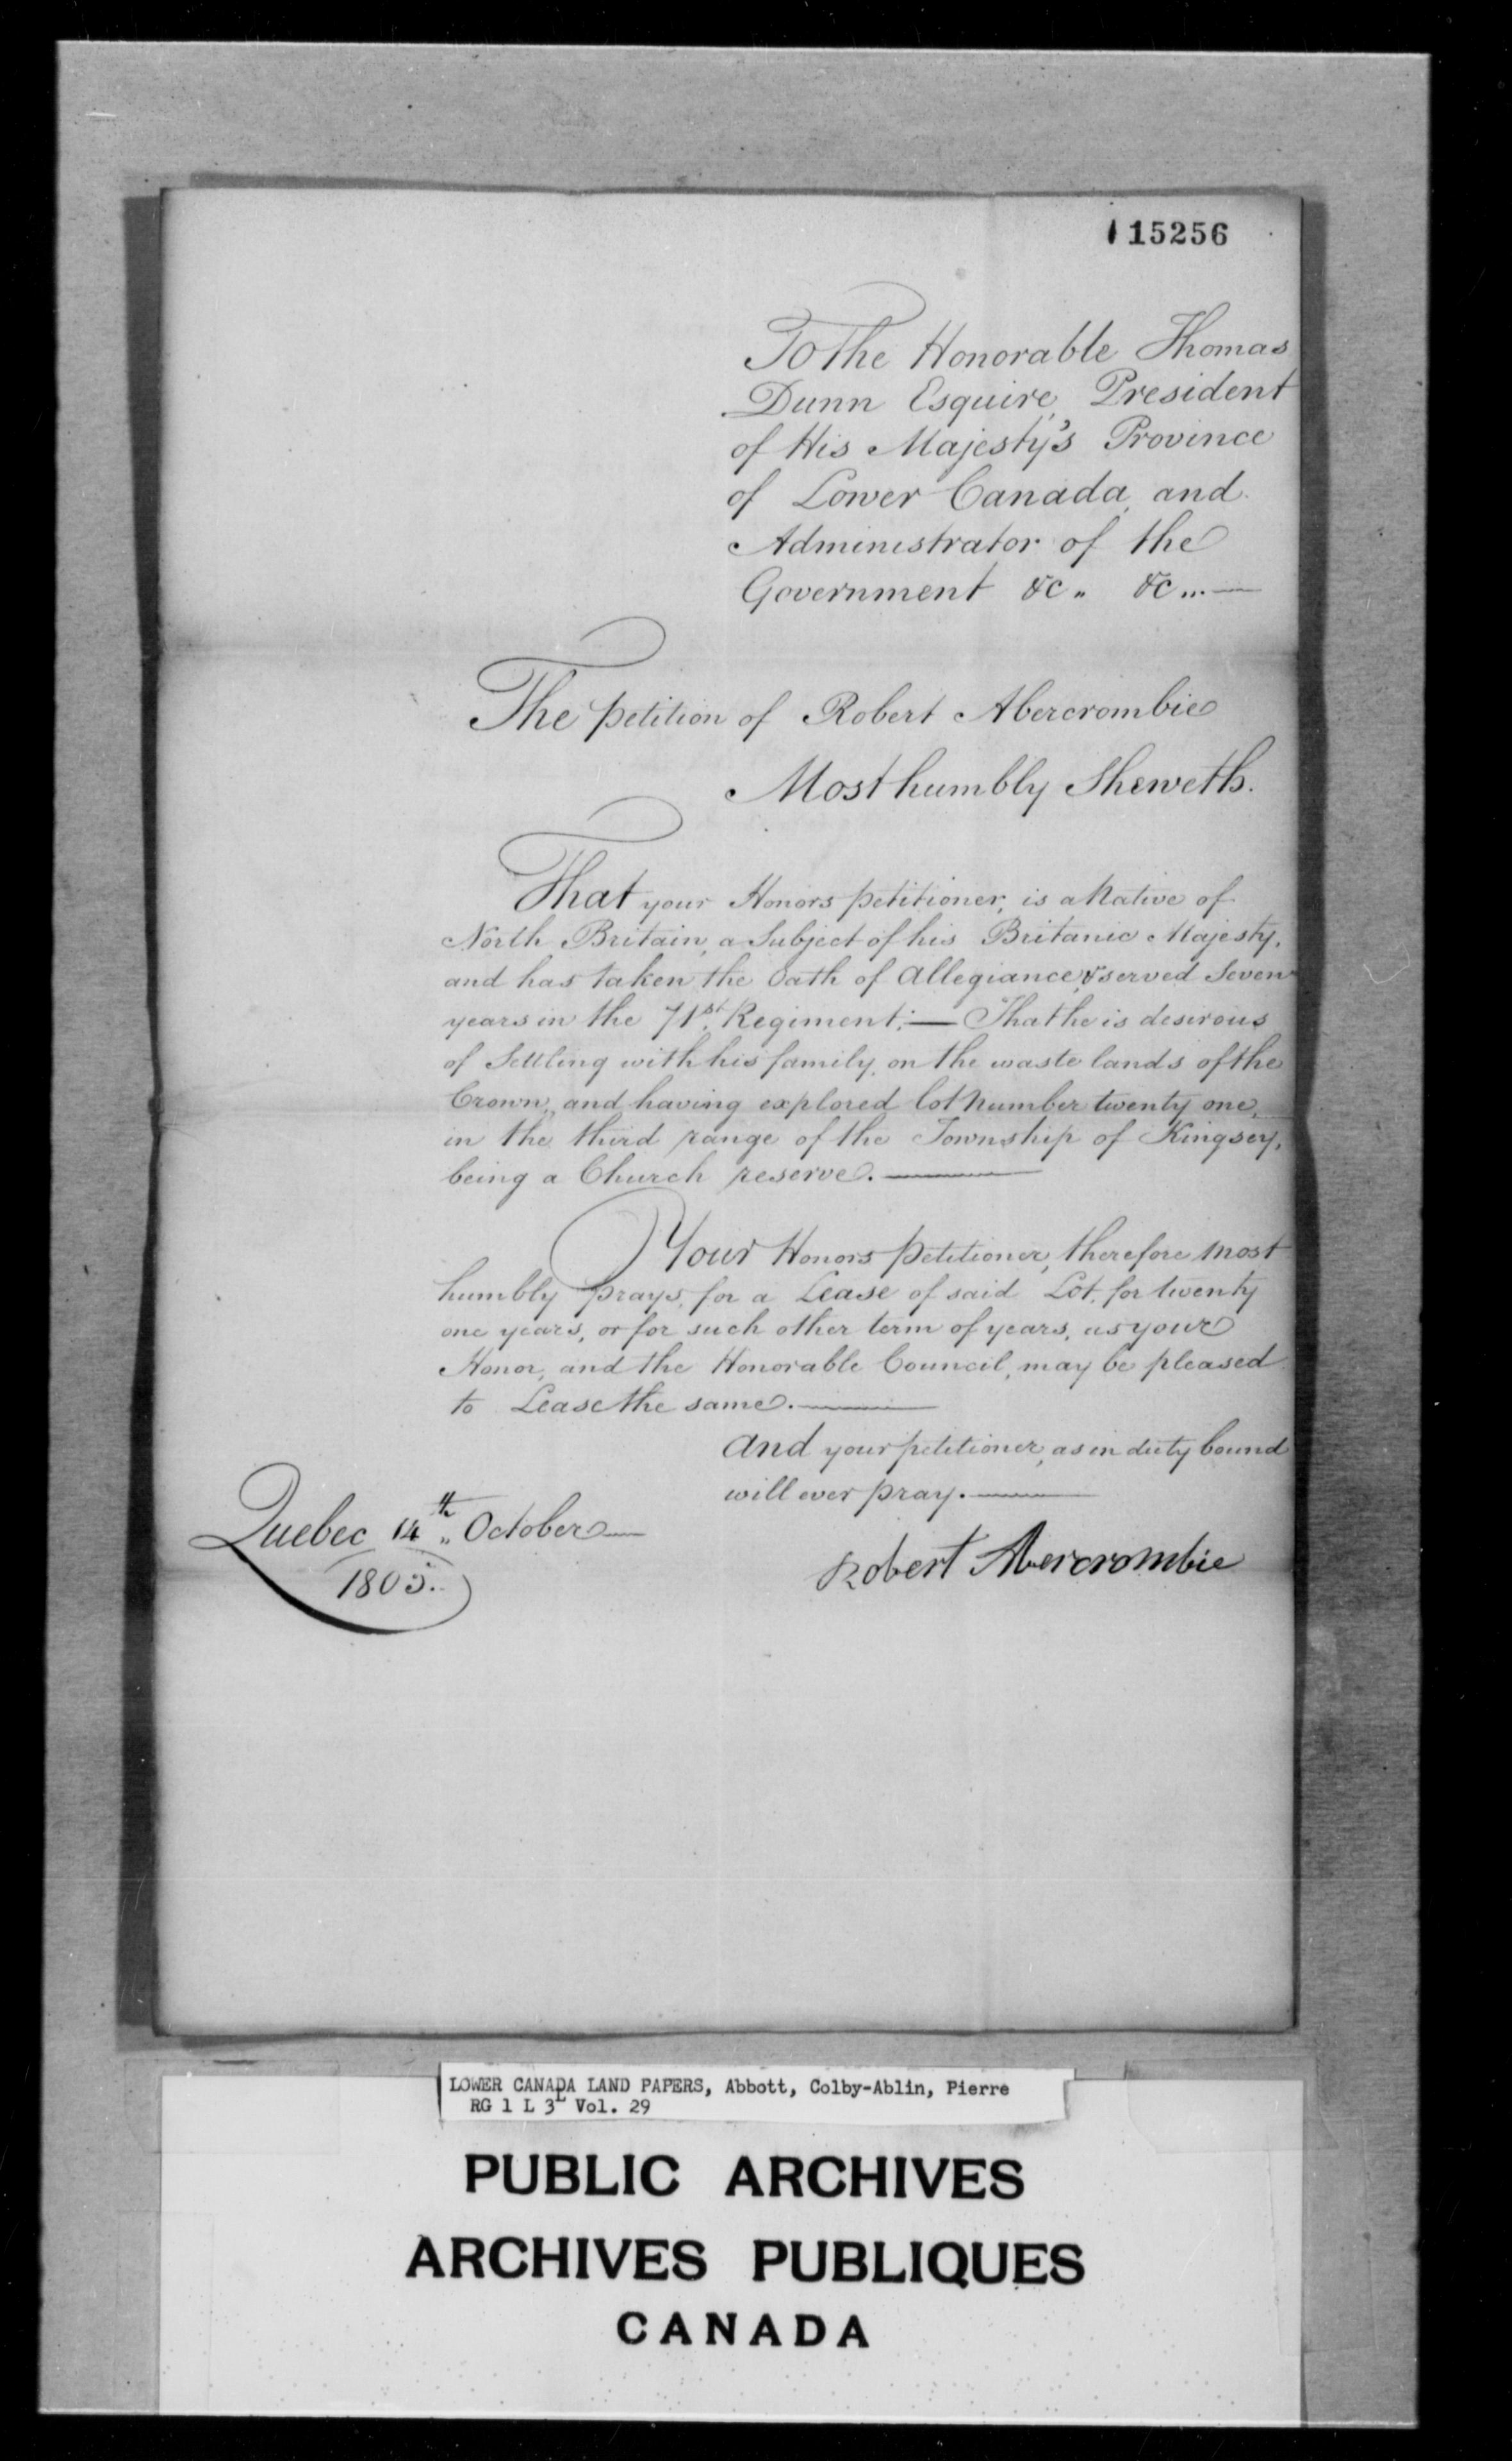 115256
To the Honorable Thomas
Dunn Esquire, President
of His Majesty's Province
of Lower Canada, and
Administrator of the
Government &c.. &c...—
The petition of Robert Abercrombie
Most humbly Sheweth.
That your Honors petitioner, is a Native of
North Britain, a Subject of his Britanic Majesty,
and has taken the Oath of Allegiance, & served Seven
years in the 71st. Regiment;— That he is desirous
of Settling with his family, on the waste lands of the
Crown, and having explored lot Number twenty one,
in the third range of the Township of Kingsey,
being a Church reserve.—
Your Honors petitioner, therefore most
humbly prays, for a Lease of said Lot, for twenty
one years, or for such other term of years, as your
Honor, and the Honorable Council, may be pleased
to Lease the same.—
And your petitioner, as in duty bound
will ever pray.—
Quebec 14th October—
1805..
Robert Abercrombie
LOWER CANADA LAND PAPERS, Abbott, Colby-Ablin, Pierre
RG 1 L 3L Vol. 29
PUBLIC ARCHIVES
ARCHIVES PUBLIQUES
CANADA